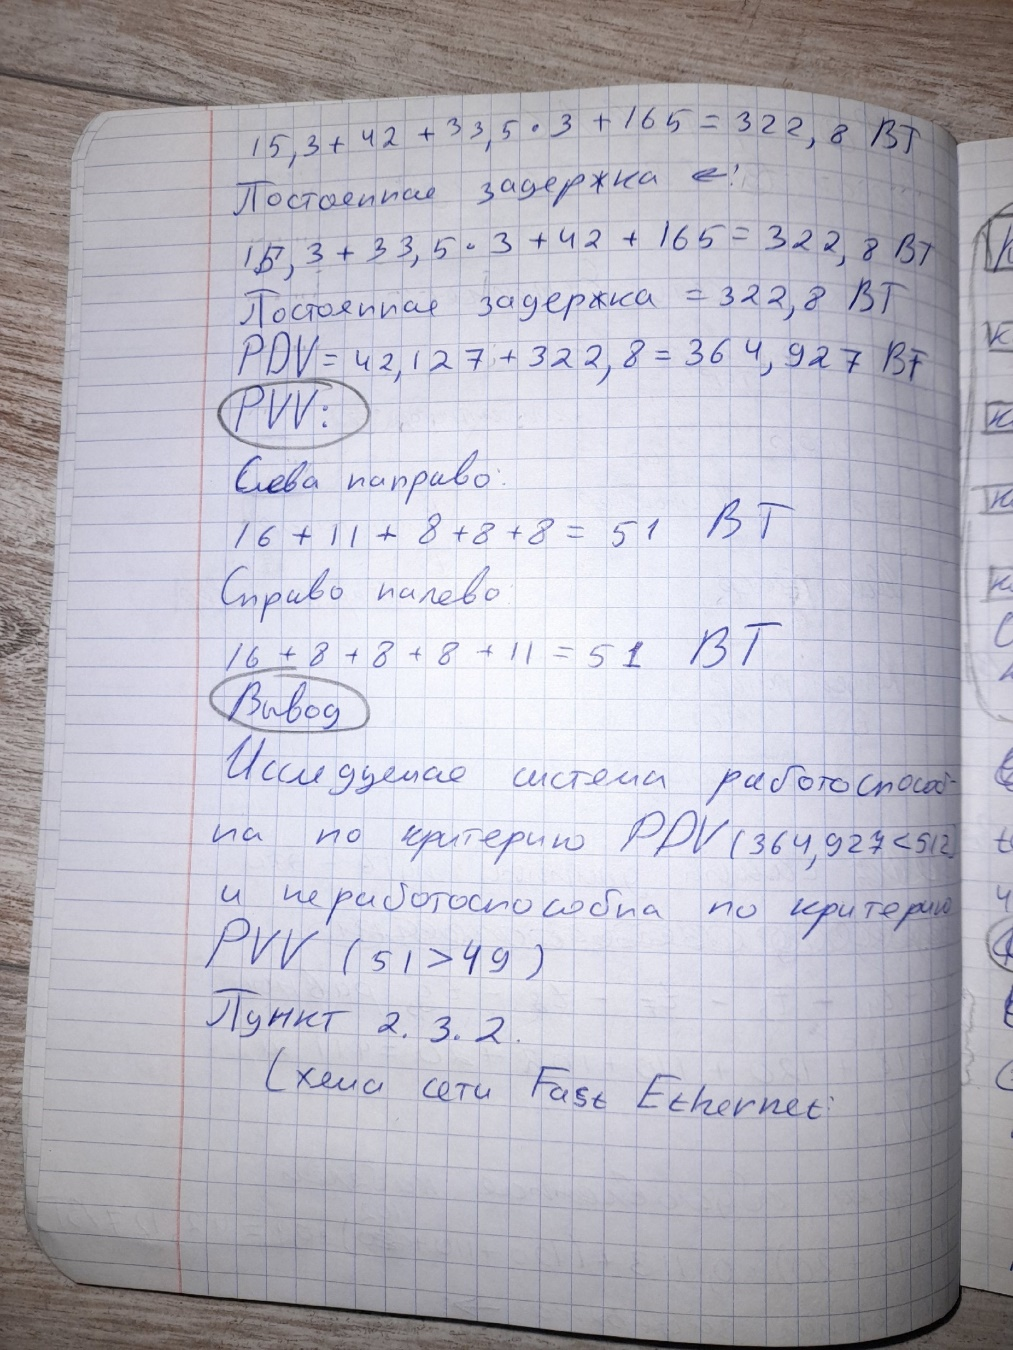 15,3 + 42 + 33,5 · 3 + 165 = 322,8 BT
Постоянная задержка ←:
15,3 + 33,5 · 3 + 42 + 165 = 322,8 BT
Постоянная задержка = 322,8 BT
PDV = 42,127 + 322,8 = 364,927 BT
PVV:
Слева направо:
16 + 11 + 8 + 8 + 8 = 51 BT
Справо налево:
16 + 8 + 8 + 8 + 11 = 51 BT
Вывод
Исследуемая система работоспособ-
на по критерию PDV (364,927 < 512)
и неработоспособна по критерию
PVV (51 > 49)
Пункт 2.3.2.
Схема сети Fast Ethernet: